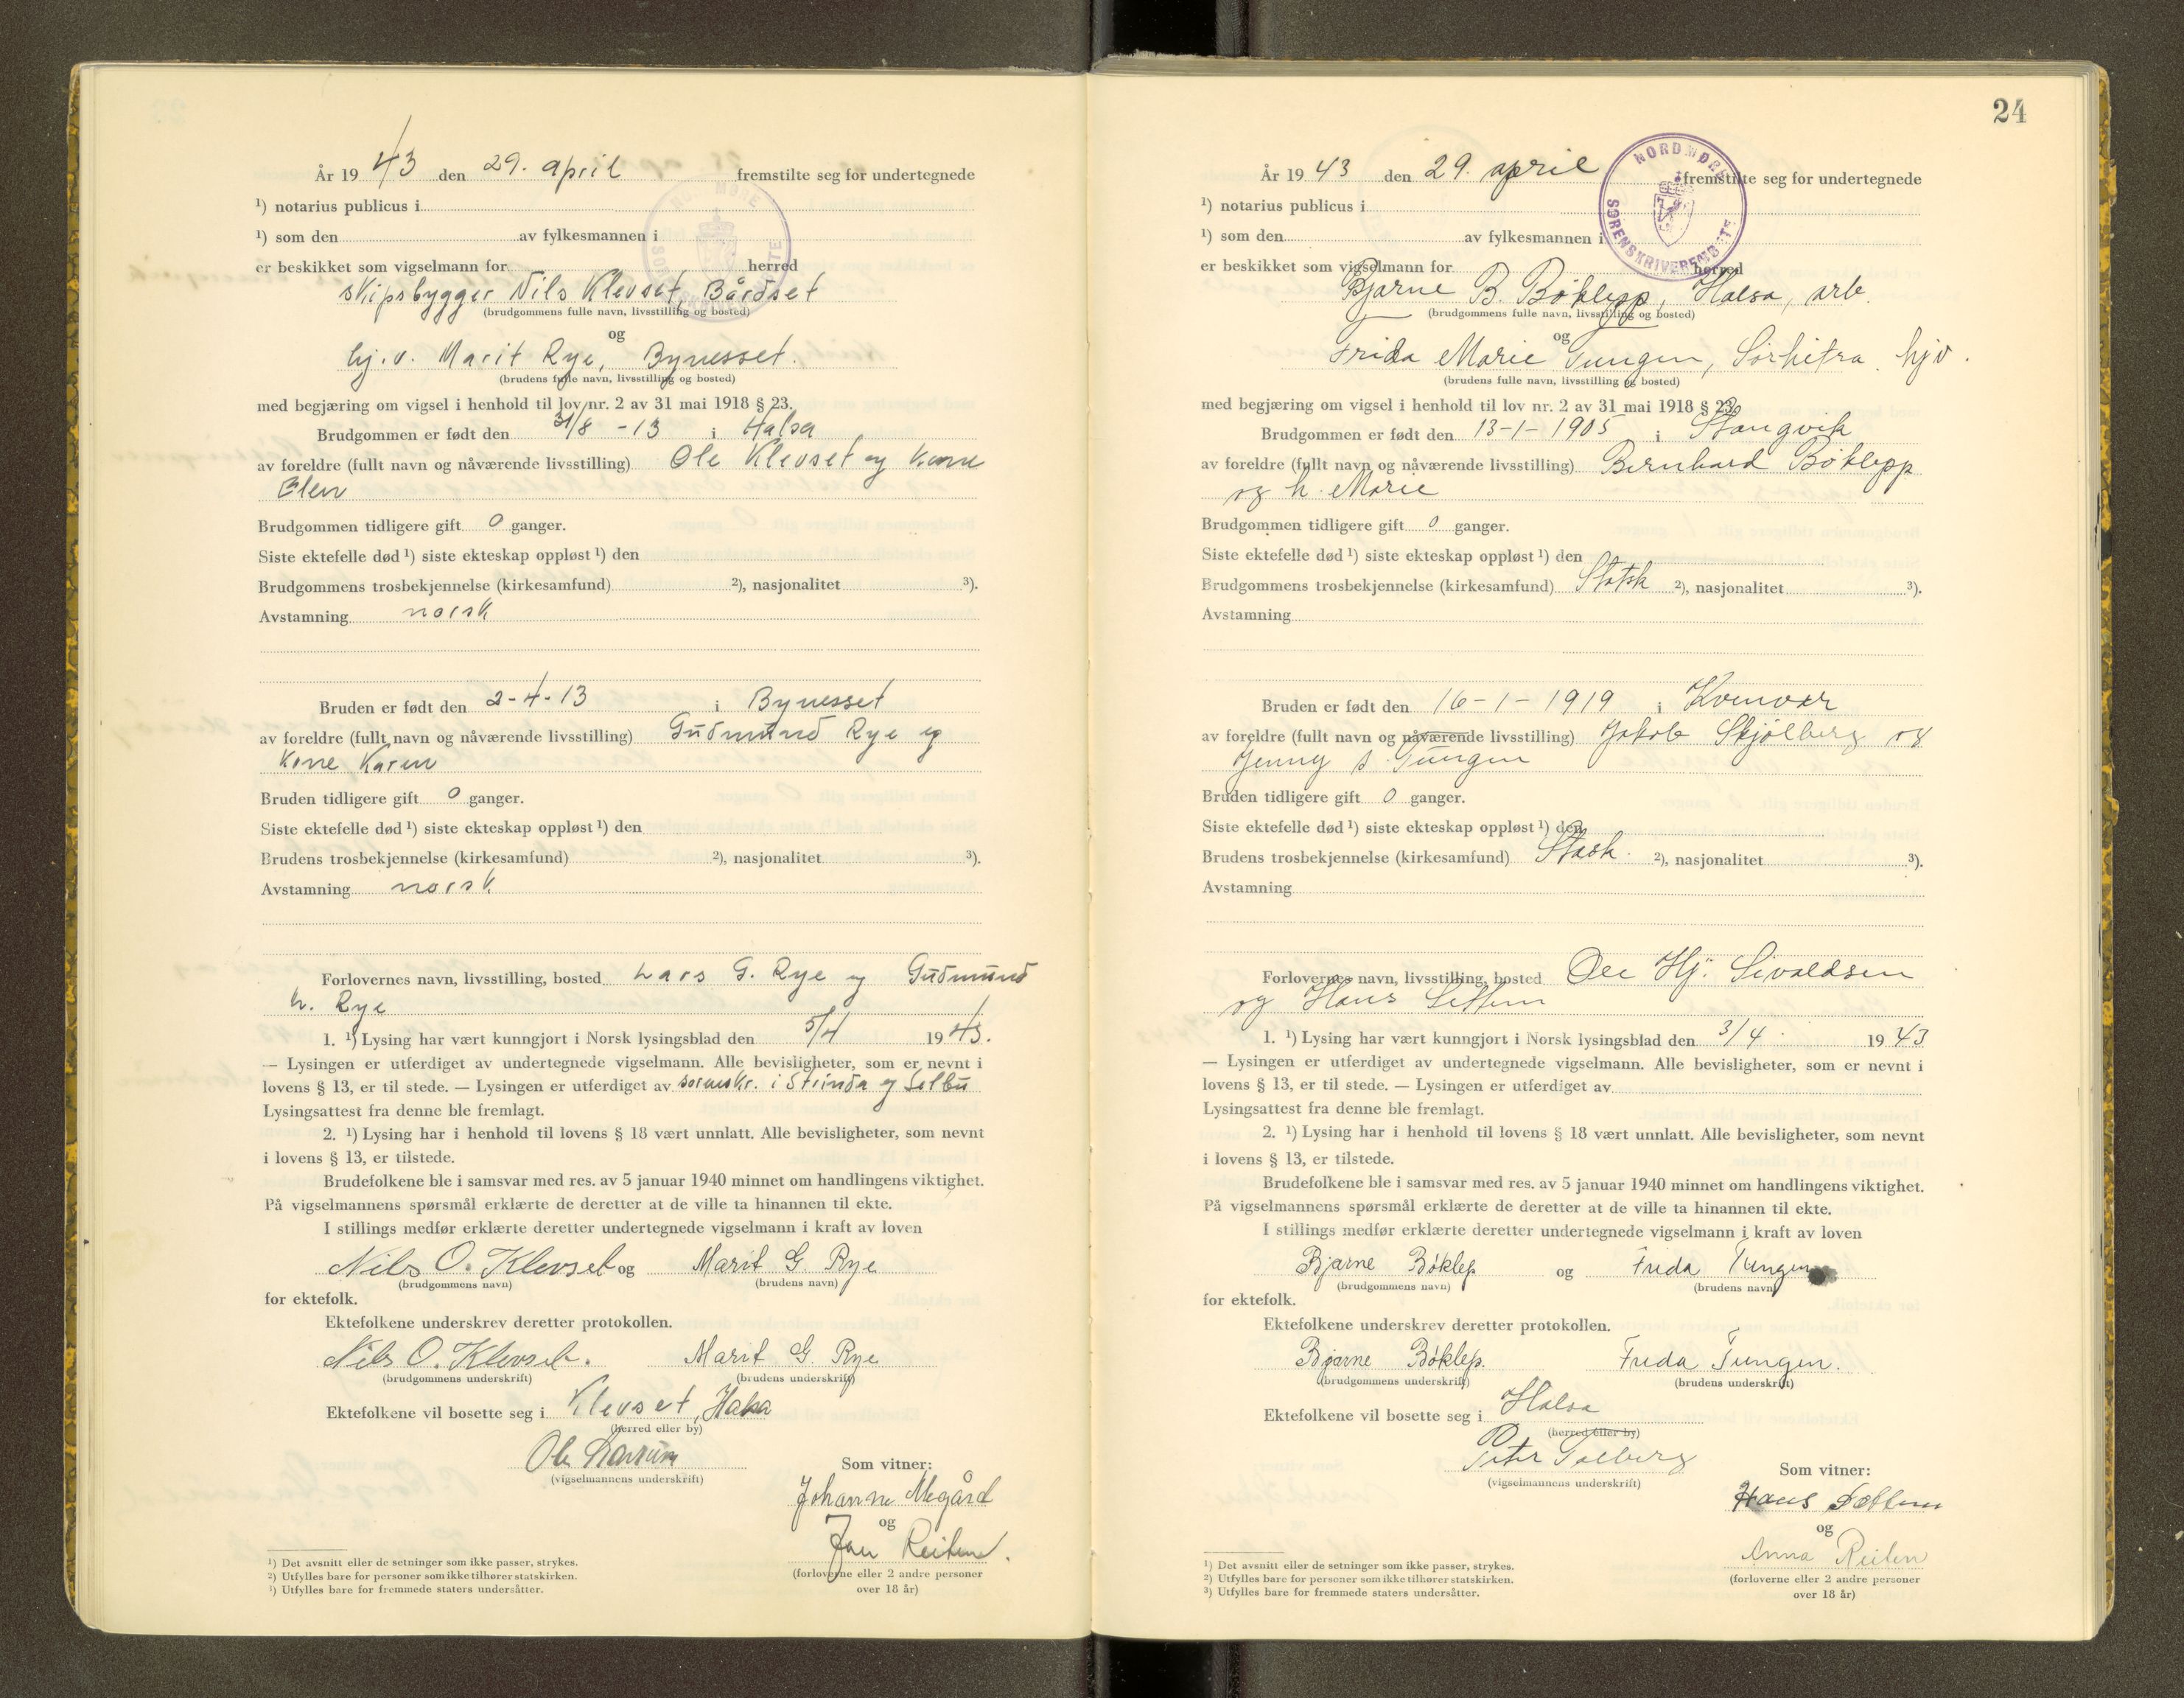 År 1943 den 29. april fremstilte seg for undertegnede
¹) notarius publicus i
¹) som den av fylkesmannen i
er beskikket som vigselmann for herred
skipsbygger Nils Klevset, Bårdset
(brudgommens fulle navn, livsstilling og bosted)
og
hj.v. Marit Rye, Bynesset.
(brudens fulle navn, livsstilling og bosted)
med begjæring om vigsel i henhold til lov nr. 2 av 31 mai 1918 § 23.
Brudgommen er født den 31/8 -13 i Halsa
av foreldre (fullt navn og nåværende livsstilling) Ole Klevset og kone
Elen
Brudgommen tidligere gift 0 ganger.
Siste ektefelle død ¹) siste ekteskap oppløst ¹) den
Brudgommens trosbekjennelse (kirkesamfund) ²), nasjonalitet ³).
Avstamning norsk
Bruden er født den 2-4-13 i Bynesset
av foreldre (fullt navn og nåværende livsstilling) Gudmund Rye og
kone Karen
Bruden tidligere gift 0 ganger.
Siste ektefelle død ¹) siste ekteskap oppløst ¹) den
Brudens trosbekjennelse (kirkesamfund) ²), nasjonalitet ³).
Avstamning norsk
Forlovernes navn, livsstilling, bosted Lars G. Rye og Gudmund
L. Rye
1. ¹) Lysing har vært kunngjort i Norsk lysingsblad den 5/4 1943.
— Lysingen er utferdiget av undertegnede vigselmann. Alle bevisligheter, som er nevnt i
lovens § 13, er til stede. — Lysingen er utferdiget av sorenskr. i Strinda og Selbu
Lysingsattest fra denne ble fremlagt.
2. ¹) Lysing har i henhold til lovens § 18 vært unnlatt. Alle bevisligheter, som nevnt
i lovens § 13, er tilstede.
Brudefolkene ble i samsvar med res. av 5 januar 1940 minnet om handlingens viktighet.
På vigselmannens spørsmål erklærte de deretter at de ville ta hinannen til ekte.
I stillings medfør erklærte deretter undertegnede vigselmann i kraft av loven
Nils O. Klevset og Marit G. Rye
(brudgommens navn) (brudens navn)
for ektefolk.
Ektefolkene underskrev deretter protokollen.
Nils O. Klevset. Marit G. Rye
(brudgommens underskrift) (brudens underskrift)
Ektefolkene vil bosette seg i Klevset, Halsa
(herred eller by)
Ole
(vigselmannens underskrift)
Som vitner:
Johanne Megård
og
Jan Reiten.
(forloverne eller 2 andre personer
over 18 år)
¹) Det avsnitt eller de setninger som ikke passer, strykes.
²) Utfylles bare for personer som ikke tilhører statskirken.
¹) Utfylles bare for fremmede staters undersåtter.
24
NORDMØRE
SORENSKRIVEREMBETE
År 1943 den 29. april fremstilte seg for undertegnede
¹) notarius publicus i
¹) som den av fylkesmannen i
er beskikket som vigselmann for herred
Bjarne B. Bøklepp, Halsa, arb.
(brudgommens fulle navn, livsstilling og bosted)
og
Frida Marie Tungen, Sørhitra. hjv.
(brudens fulle navn, livsstilling og bosted)
med begjæring om vigsel i henhold til lov nr. 2 av 31 mai 1918 § 23.
Brudgommen er født den 13-1-1905 i Stangvik
av foreldre (fullt navn og nåværende livsstilling) Bernhard Bøklepp
og h. Marie
Brudgommen tidligere gift 0 ganger.
Siste ektefelle død ¹) siste ekteskap oppløst ¹) den
Brudgommens trosbekjennelse (kirkesamfund) Statsk ²), nasjonalitet ³).
Avstamning
Bruden er født den 16-1-1919 i Kvenvær
av foreldre (fullt navn og nåværende livsstilling) Jakob Skjølberg og
Jenny S. Tungen
Bruden tidligere gift 0 ganger.
Siste ektefelle død ¹) siste ekteskap oppløst ¹) den
Brudens trosbekjennelse (kirkesamfund) Stask. ²), nasjonalitet ³).
Avstamning
Forlovernes navn, livsstilling, bosted Ole Hj. Sivaldsen
og Hans Settem
1. ¹) Lysing har vært kunngjort i Norsk lysingsblad den 3/4. 1943
— Lysingen er utferdiget av undertegnede vigselmann. Alle bevisligheter, som er nevnt i
lovens § 13, er til stede. — Lysingen er utferdiget av
Lysingsattest fra denne ble fremlagt.
2. ¹) Lysing har i henhold til lovens § 18 vært unnlatt. Alle bevisligheter, som nevnt
i lovens § 13, er tilstede.
Brudefolkene ble i samsvar med res. av 5 januar 1940 minnet om handlingens viktighet.
På vigselmannens spørsmål erklærte de deretter at de ville ta hinannen til ekte.
I stillings medfør erklærte deretter undertegnede vigselmann i kraft av loven
Bjarne Bøklep og Frida Tungen
(brudgommens navn) (brudens navn)
for ektefolk.
Ektefolkene underskrev deretter protokollen.
Bjarne Bøklep. Frida Tungen.
(brudgommens underskrift) (brudens underskrift)
Ektefolkene vil bosette seg i Halsa
(herred eller by)
Peter Solberg
(vigselmannens underskrift)
Som vitner:
Hans Settem
og
Anna Reiten
(forloverne eller 2 andre personer
over 18 år)
¹) Det avsnitt eller de setninger som ikke passer, strykes.
²) Utfylles bare for personer som ikke tilhører statskirken.
³) Utfylles bare for fremmede staters undersåtter.